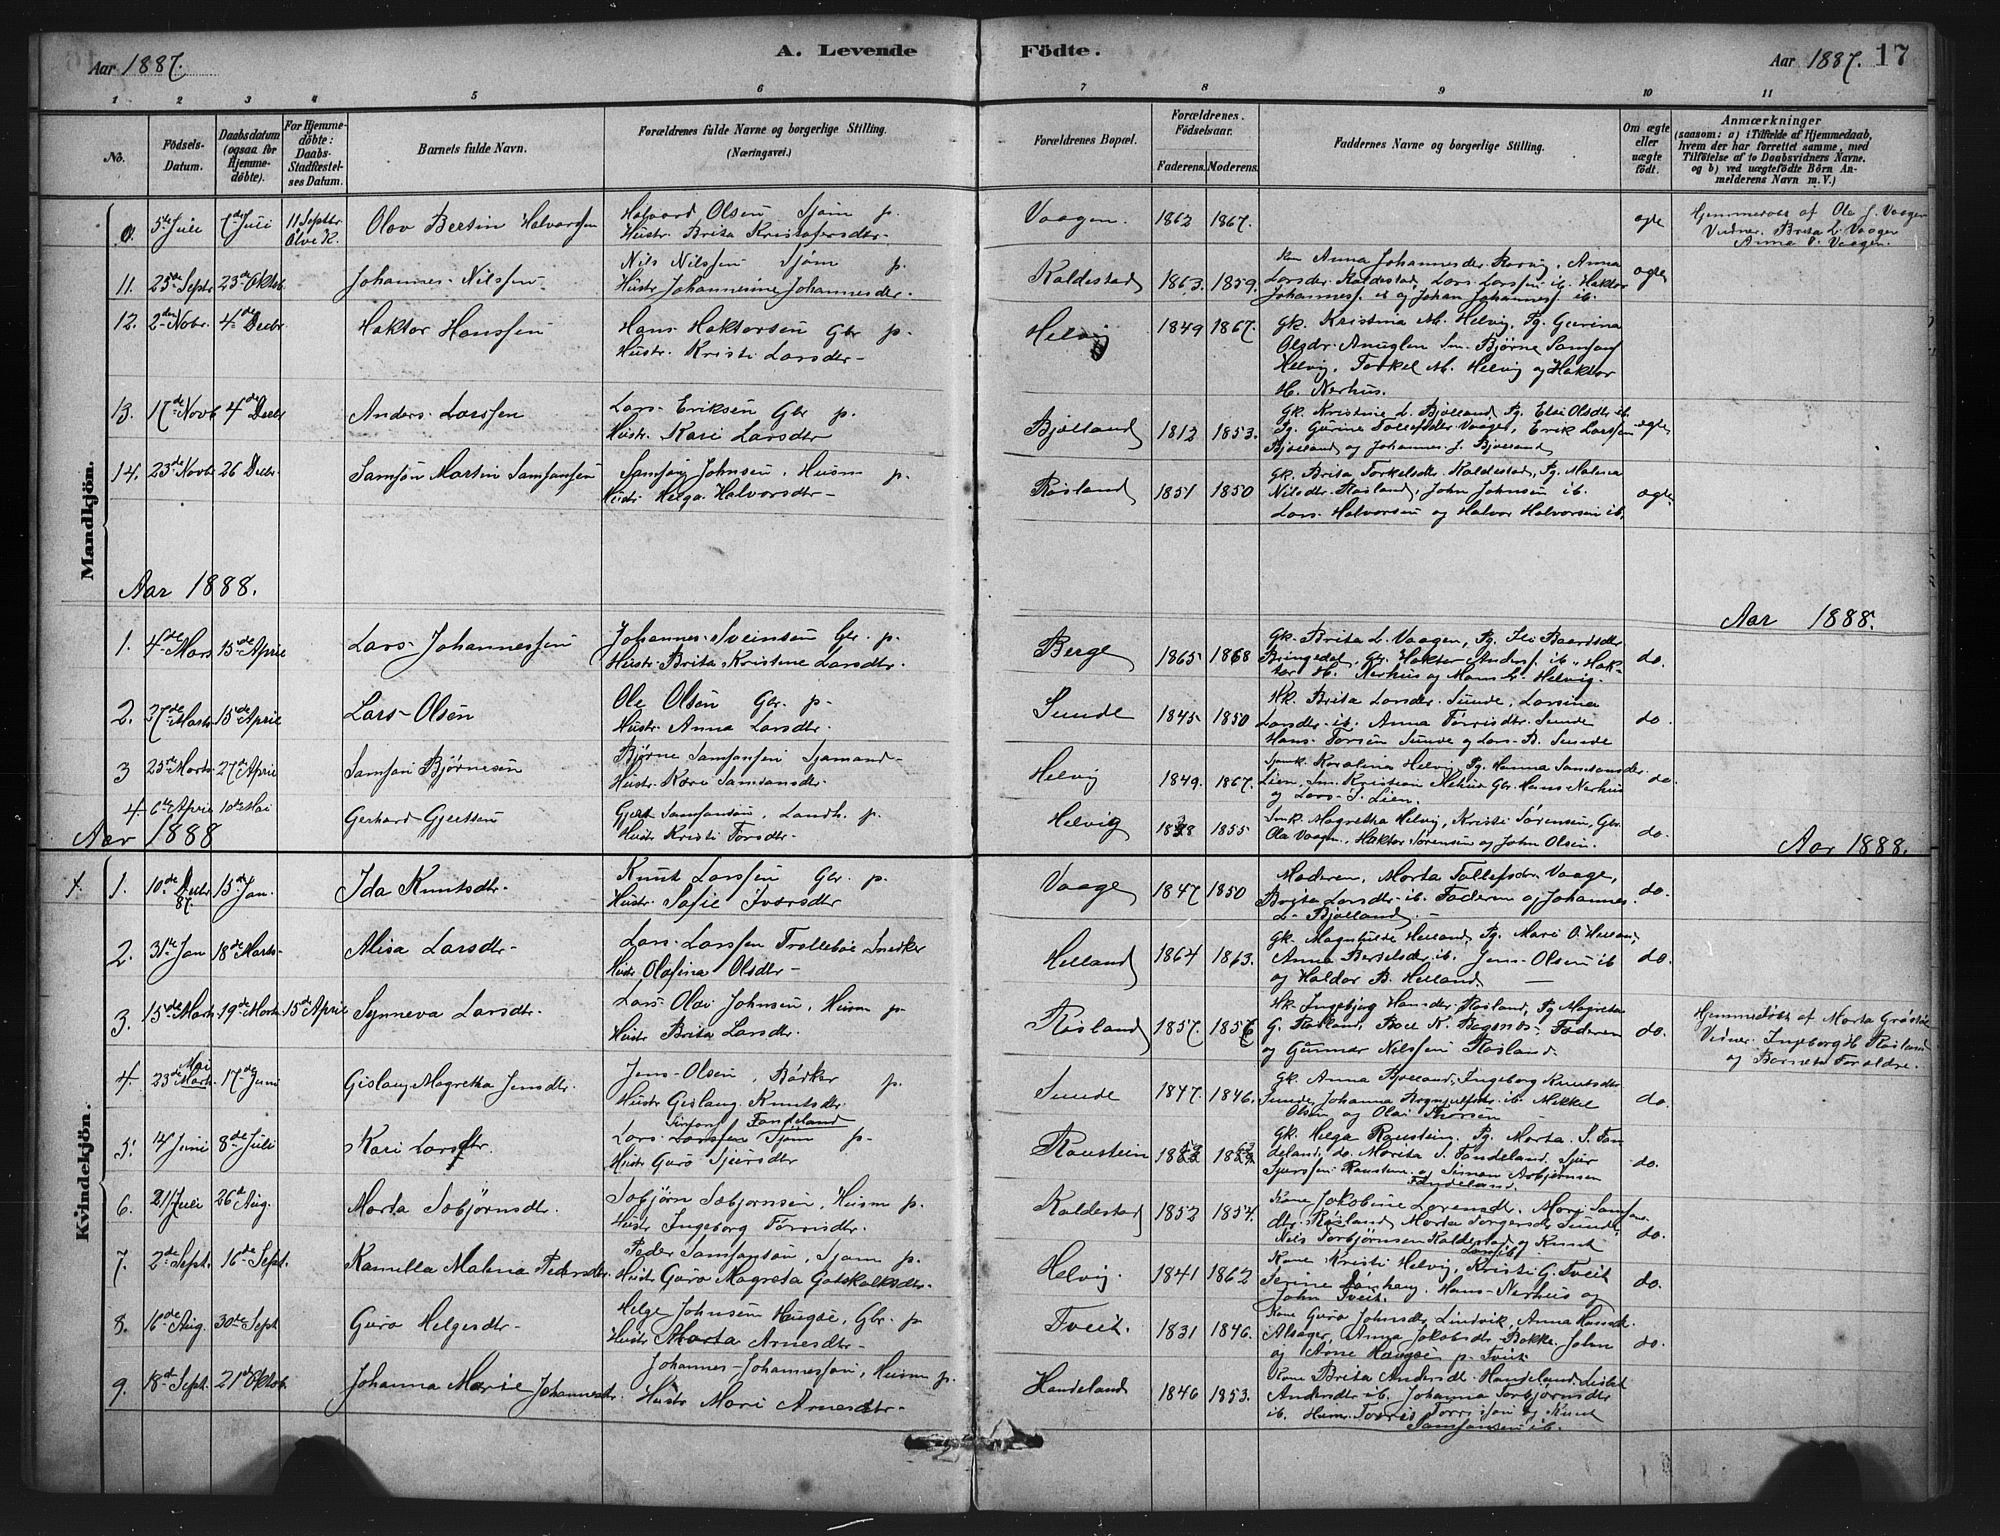 Aar 1887. A. Levende Födte. Aar 1887. 17
1 2 3 4 5 6 7 8 9 10 11
No.
Födsels-
Datum.
Daabsdatum
(ogsaa for
Hjemme-
döbte).
For Hjemme-
döbte:
Daabs-
Stadfæstel-
ses Datum.
Barnets fulde Navn.
Forældrenes fulde Navne og borgerlige Stilling.
(Næringsvei.)
Forældrenes Bopæl.
Forældrenes
Födselsaar.
Faderens. Moderens.
Faddernes Navne og borgerlige Stilling.
Om ægte
eller
uægte
födt.
Anmærkninger
(saasom: a) i Tilfælde af Hjemmedaab,
hvem der har forrettet samme, med
Tilföielse af to Daabsvidners Navne.
og b) ved uægtefödte Börn An-
melderens Navn m. V.)
Mandkjön.
5te Juli 7de Juli 11 Septbr Ölve K. Olav Bertin Halvorsen
Halvard Olsen Sjøm p.
Hustr. Brita Kristofersdtr.
Vaagen. 1862 1867. ægte
Hjemmedøbt af Ole J. Vaagen
Vidner. Brita L. Vaagen
Anna Vaagen.
11. 25de Septr 23de Oktob. Johannes Nilssen
Nils Nilssen Sjøm p.
Hustr Johannesine Johannesdr.
Kaldestad 1863. 1859.
Kone Anna Johannesdr Anna
Larsdr. Kaldestad, Lars Larssen ib. Haktor
Johanness. ib og Johan Johanness ib.
ægte
12. 2den Nobr. 4de Decbr Haktor Hanssen
Hans Haktorsen Gbr p.
Hustr. Kristi Larsdr
Helvig 1849 1867.
Gk. Kristina M. Helvig, Pg. Gurina
Olsdr. Anuglen Sm. Bjørne Samsons
Helvig, Torkel M. Helvig og Haktor
H. Nerhus.
13. 17de Novb 4de Decbr Anders Larssen
Lars Eriksen Gbr p.
Hustr. Kari Larsdtr
Bjølland 1812 1853.
Gk. Kristine L. Bjølland, Pg. Elsi Olsdtr ib.
Pg. Gurine Tollefsdtr Vaage, Erik Larssen
Bjølland og Johannes J. Bjølland
ægte
14. 23de Novbr 26 Decbr. Samson Martin Samsonsen
Samson Johnsen, Husm p.
Hustr Helga Halvorsdtr
Røsland 1851 1850
Gk. Brita Torkelsdr. Kaldestad, Pg. Malena
Nilsdtr. Røsland, John Johnsen ib.
Lars Halvorsen og Halvor Halvorsen ib.
ægte
Aar 1888. Aar 1888.
1. 4de Mars 15de April Lars Johannessen
Johannes Sveinsen Gbr. p.
Hustr Brita Kristine Larsdtr.
Berge 1865 1868
Gk. Brita L. Vaagen, Pg. Eli Baardsdtr
Bringedal, Gbr. Haktor Anders. ib. Hak-
tor H. Nerhus og Mons Helvig.
do.
2. 27de Marts 15de April Lars Olsen
Ole Olsen Gbr. p.
Hustr. Anna Larsdtr.
Sunde 1845 1850
Hk. Brita Larsdtr. Sunde, Larsina
Larsdtr. ib. Anna Tørrisdtr. Sunde
Hans Torsen Sunde og Lars B. Sunde
do.
3 25de Marts 27de April Samson Bjørnesen
Bjørne Samsonsen Sjømand
Hustr. Kari Samsonsdr.
Helvig 1849. 1867.
Karolina Helvig, Pg. Hanna Samsonsdr.
Lien, Sm. Kristian Gbr. Hans Nerhus
og Lars S. Lien.
do.
4. 6te April 10de Mai Gerhard Gjertsen
Gjert Samsonsen, Landh. p.
Hustr Kristi Torsdtr.
Helvig 1855
Magretha Helvig, Kristi Sørensen, Gbr.
Ole Vaagen, Haktor Sørensen og John Olsen.
do.
Aar 1888 Aar 1888.
Kvindekjön.
1. 10de Decbr 87. 15de Jan. Ida Knutsdtr.
Knut Larssen Gbr. p.
Hustr. Sofie Iversdtr
Vaage 1847 1850
Moderen, Marta Tollefsdtr Vaage,
Brita Larsdtr. ib. Faderen og Johannes
L. Bjølland.
do.
2. 31te Jan 18de Marts Alisa Larsdtr
Lars Larssen Trollebøe Snedker
Hustr Olafina Olsdtr
Helland 1864 1863.
Gk. Magnhilde Helland, Pg. Mari O. Helland,
Anna Bertelsdr ib. Jens Olsen ib
og Haldor B. Helland
do.
3. 15de Marts 19de Marts 15de April Synneva Larsdtr.
Lars Olai Johnsen, Husm p.
Hustr Brita Larsdtr.
Røsland 1857. 1857
Hk. Ingebjørg Hansdr. Røsland, Pg Magreta
G. Røsland, Boel K. Bogsnes. Faderen
og Gunnar Nilssen Røsland.
do.
Hjemmedøbt af Marta
Vidner. Ingeborg H. Røsland
og Barnets Foraldre.
4. 23de Mai 17de Juni Gislaug Magretha Jensdtr.
Jens Olsen, Bødker p.
Hustr Gislaug Knutsdtr.
Sunde 1847. 1846.
Gk. Anna Bjølland, Ingeborg Knutsdtr
Sunde, Johanna Brynjulfsdr. ib. Mikkel
Olsen og Olai Thorsen
do.
5. 14 Juni 8de Juli Kari Larsdtr.
Lars Larssen Sjøm p. Fondeland
Hustr Guro Sjursdtr
Raustein
Gk. Helga Raustein, Pg. Marta S. Fon-
deland, do. Marita S. Fondeland, Sjur
Sjurssen Raustein og Simon Asbjørnsen
Fondeland.
do.
6. 21 Juli 26de Aug. Marta Tobjørnsdtr.
Tobjørn Tobjørnsen, Husm p.
Hustr Ingeborg Tørrisdtr.
Kaldestad 1852 1854.
Kone Jakobine Larsendt., Mari Samson-
dtr. Røsland, Marta Torgersdr. Sunde
Nils Torbjørnsen Kaldestad og Knut
do.
7. 2de Sept. 16de Sept. Kamilla Malena Pedersdtr.
Peder Samsonsen, Sjøm p.
Hustr Guro Magreta Gotskalksdtr.
Helvig. 1841 1862
Kone Kristi Helvig, Kristi G. Tveit
Serine Hans Nerhus og
John Tveit.
do.
8. 16de Aug. 30de Sept Guro Helgesdtr
Helge Johnsen Haugse, Gbr. p
Hustr Marta Arnesdtr
Tveit. 1831 1846.
Kone Guro Johnsdtr. Lindvik, Anna
Alsager, Anna Jakobsdtr. Bakke, John
og Arne Haugse p. Tveit
do.
9. 18de Sept. 21de Oktob. Johanna Marie Johannesdtr.
Johannes Johannessen, Husm p.
Hustr Mari Arnesdtr.
Handeland 1846 1853.
Kone Brita Andersdt. Handeland,
Andersdtr ib. Johanna Torbjørnsdtr
ib. Husm. Torris og Knut
Samsonsen ib.